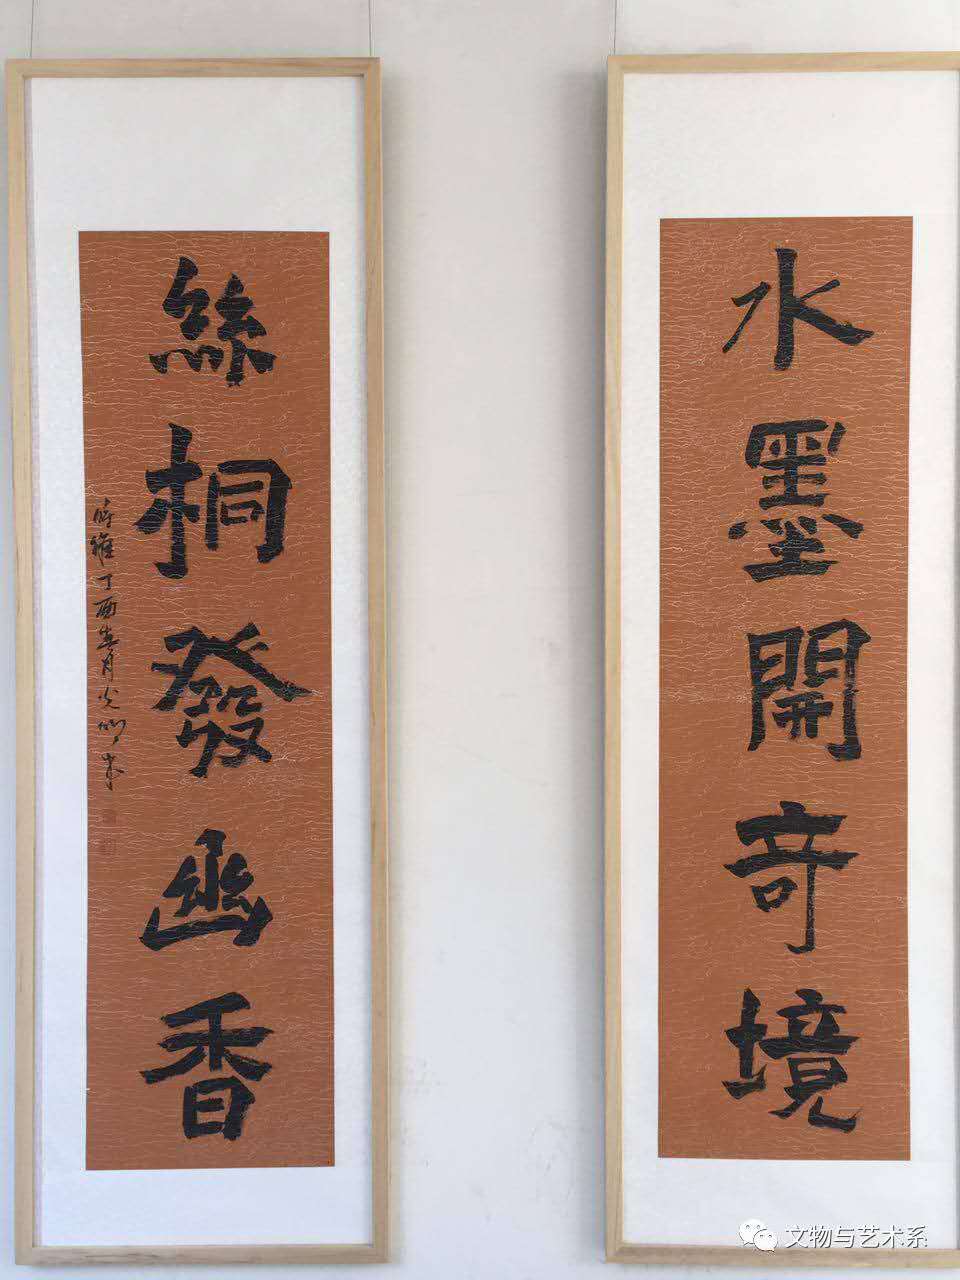 水墨開奇境
絲桐發幽香
時維丁酉春月
文物与艺术系